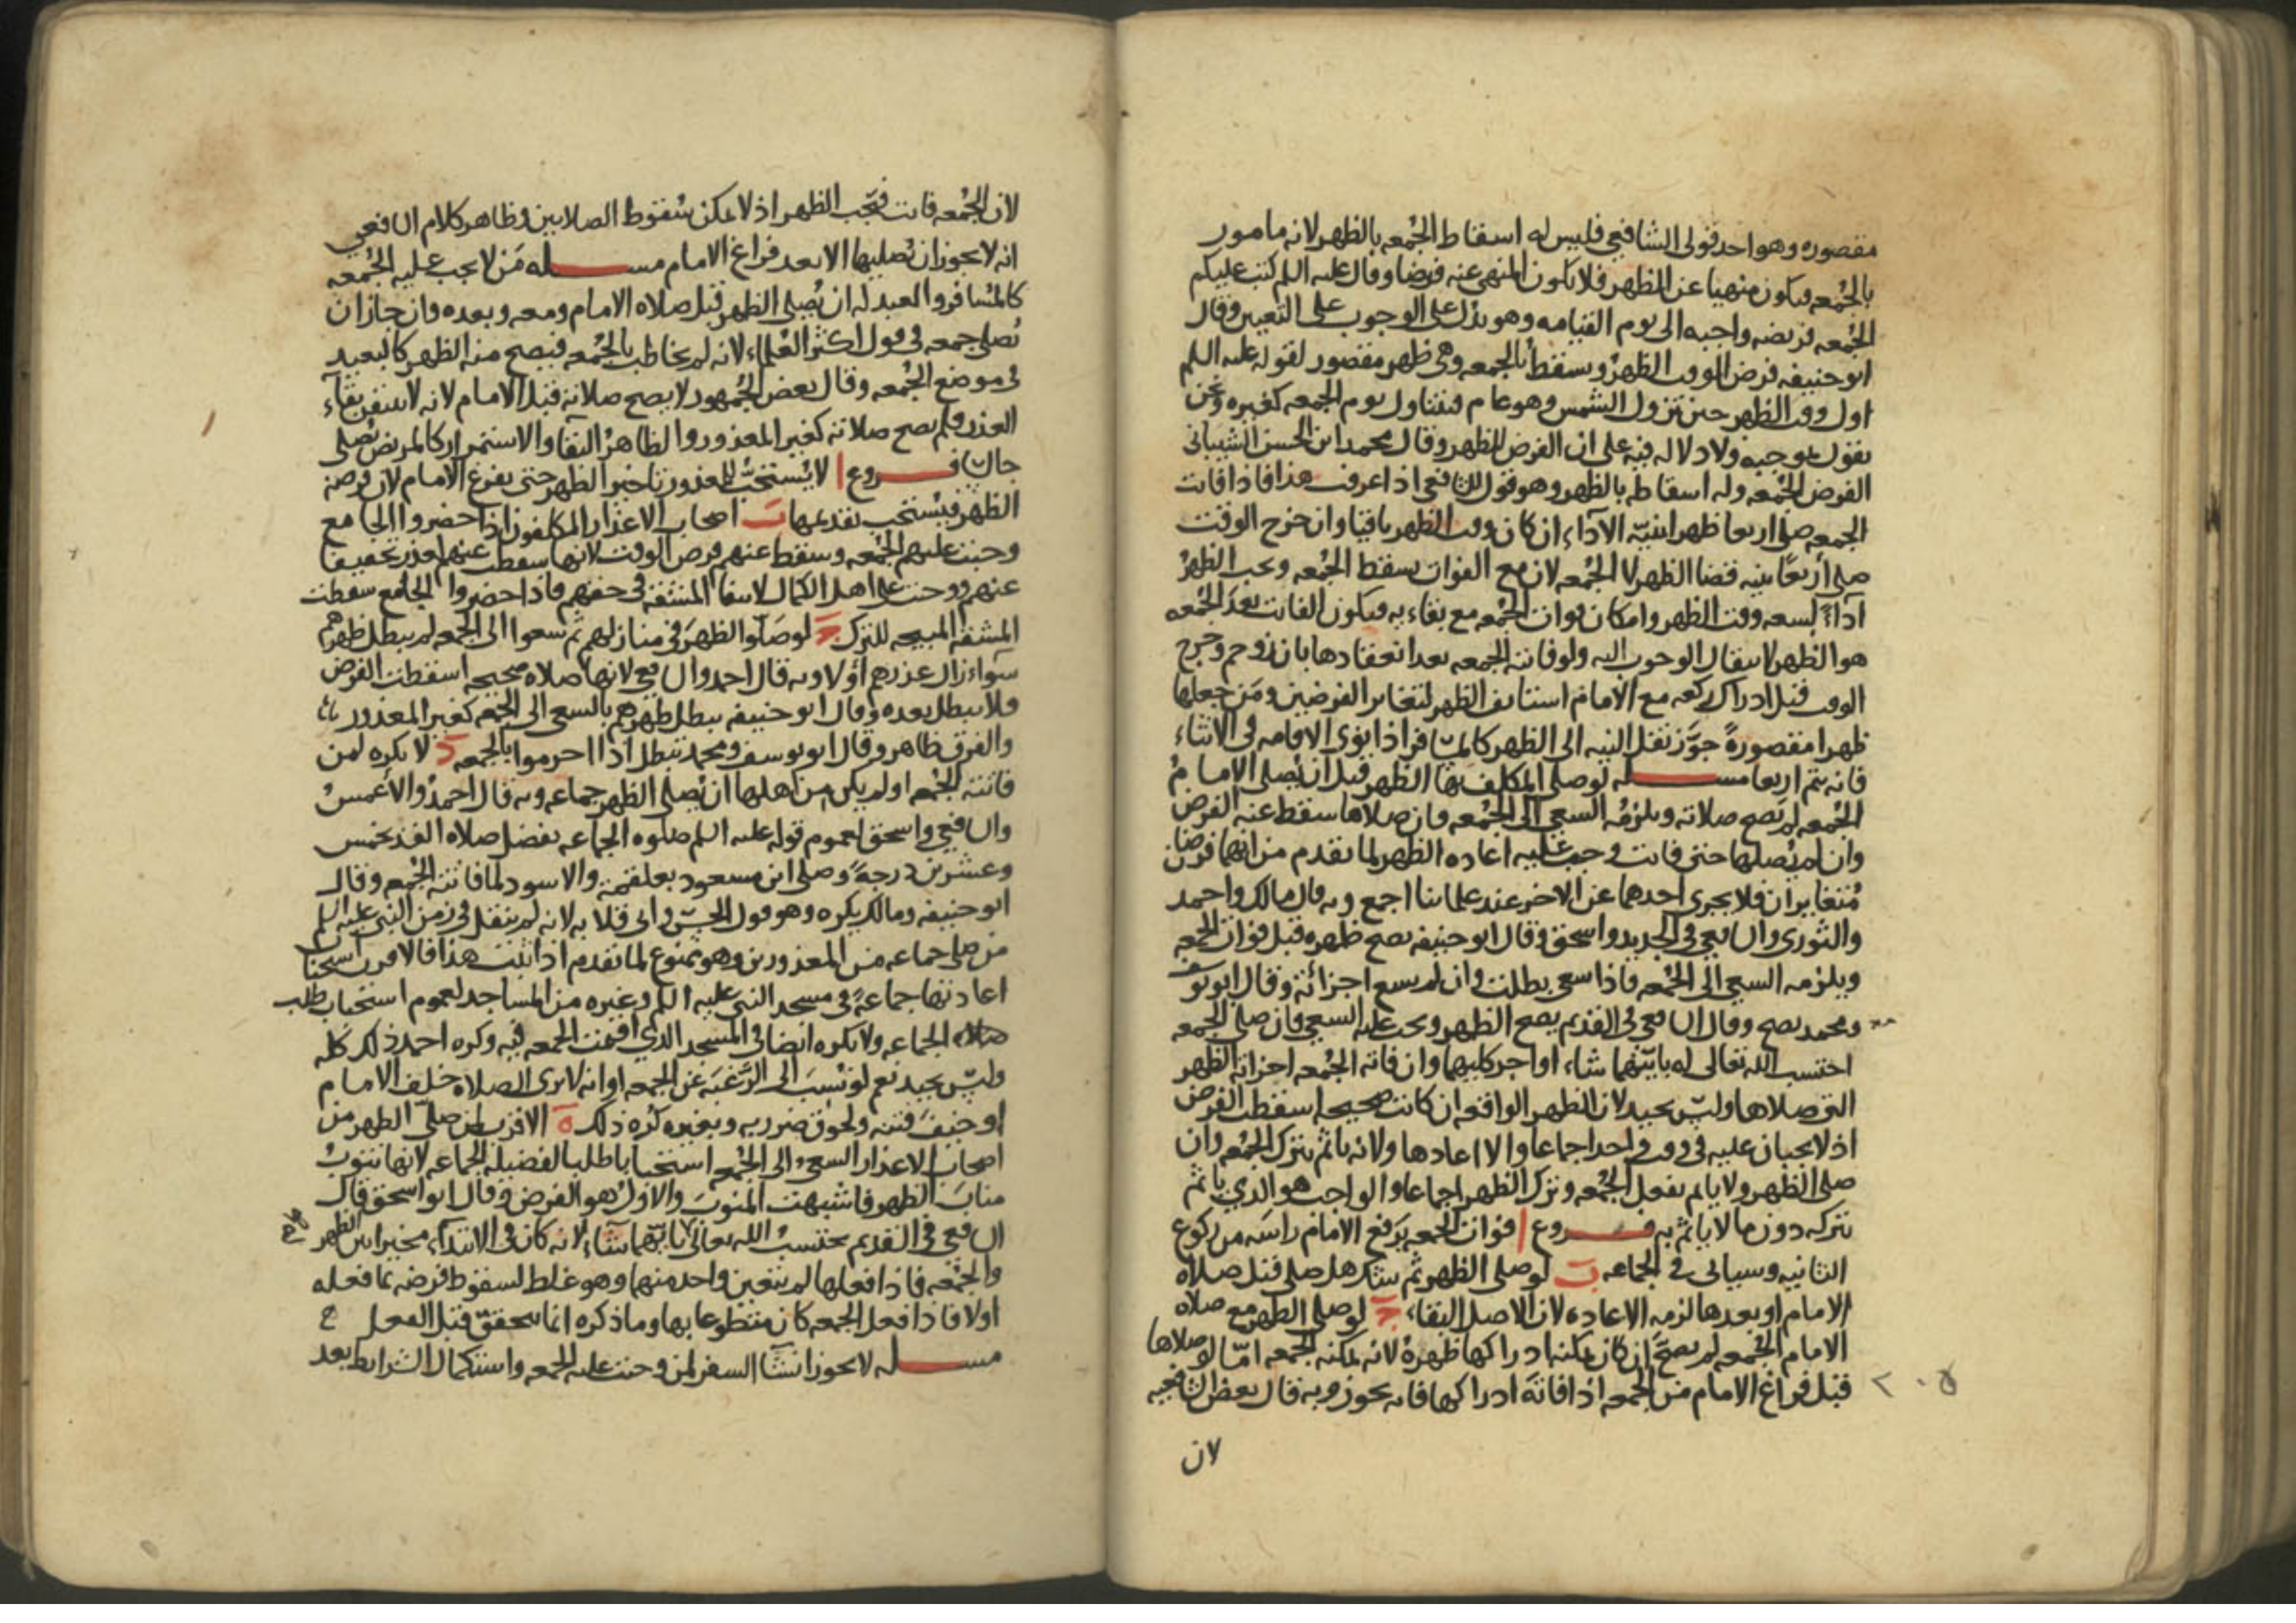 مقصوره وهو احد قولى الشافعي فليس له اسقاط الجمعه بالظهر لانه مامور
بالجمعه فيكون منهيا عن الظهر فلا يكون المنهى عنه فرضا وقال عليه السلم كتب عليكم
الجمعه فريضه واجبه الى يوم القيامه وهو يدل على الوجوب على التعيين وقال
ابو حنيفه فرض الوقت الظهر ويسقط بالجمعه وهى ظهر مقصور لقوله عليه السلم
اول وقت الظهر حين تزول الشمس وهو عام فيتناول يوم الجمعه كغيره ونحن
نقول بموجبه ولا دلاله فيه على ان الفرض الظهر وقال محمد ابن الحسن الشيبانى
الفرض الجمعه وله اسقاطه بالظهر وهو قول للشافعى اذا عرفت هذا فاذا فاتت
الجمعه صلى اربعا ظهرا بنيّه الآداء ان كان وقت الظهر باقيا وان خرج الوقت
صلى أربعًا بنيه قضا الظهر لا الجمعه لان مع الفوات يسقط الجمعه ويجب الظهر
آداءً لسعه وقت الظهر وامكان فوات الجمعه مع بقاءيه فيكون الفائت بعد الجمعه
هو الظهر لانتقال الوجوب اليه ولو فاتته الجمعه بعد انعقادها بان زوحم وخرج
الوقت قبل ادراك ركعه مع الامام استانف الظهر لتغاير الفرضين ومن جعلها
ظهرا مقصورةً جوّز نقل النيه الى الظهر كالمسافر اذا نوى الاقامه فى الاثناء
فانه يتم اربعا مسله لو صلى المكلف بها الظهر قبل ان يصلى الامام
الجمعه لم تصح صلاته ويلزمه السعى الى الجمعه فان صلاها سقط عنه الفرض
وان لم يصلها حتى فاتت وجب عليه اعاده الظهر لما تقدم من انهما فرضان
متغايران فلا يجزى احدهما عن الاخر عند علمائنا اجمع وبه قال مالك واحمد
والثورى والشافعى فى الجديد واسحق وقال ابو حنيفه تصح ظهره قبل فوات الجمعه
ويلزمه السعى الى الجمعه فاذا سعى بطلت وان لم يسع اجزأته وقال ابو يوسف
ومحمد تصح وقال الشافعى فى القديم يصح الظهر ويجب عليه السعى فان صلى الجمعه
احتسب الله تعالى له بايتهما شاء او اجر كليهما وان فاته الجمعه اجزاته الظهر
التى صلاها وليس بجيد لان الظهر الواقعه ان كانت صحيحه اسقطت الفرض
اذ لا يجبان عليه فى وقت واحد اجماعا والا اعادها ولانه ياثم بترك الجمعه وان
صلى الظهر ولا ياثم بفعل الجمعه وترك الظهر اجماعا والواجب هو الذي ياثم
بتركه دون ما لا ياثم به فروع ا فوات الجمعه برفع الامام راسه من ركوع
الثانيه وسياتى فى الجماعه ب لو صلى الظهر ثم شك هل صلى قبل صلاه
الامام او بعدها لزمه الاعاده لان الاصل البقاء ج لو صلى الظهر مع صلاه
الامام الجمعه لم يصح ان كان يمكنه ادراكها ظهره لانه يمكنه الجمعه امّا لو صلاها
قبل فراغ الامام من الجمعه اذا فاته ادراكها فانه يجوز وبه قال بعض الشافعيه
لان
لان الجمعه فاتت فتجب الظهر اذ لا يمكن سقوط الصلاتين وظاهر كلام الشافعى
انه لا يجوز ان تصليها الا بعد فراغ الامام مسله من لا يجب عليه الجمعه
كالمسافر والعبد له ان يصلى الظهر قبل صلاه الامام ومعه وبعده وان جاز ان
تصلى جمعه فى قول اكثر العلماء لانه لم يخاطب بالجمعه فيصح منه الظهر كالبعيد
فى موضع الجمعه وقال بعض الجمهور لا يصح صلاته قبل الامام لانه لا يتيقن بقآء
العذر فلم يصح صلاته كغير المعذور والظاهر البقا والاستمرار كالمريض يصلى
جالسا فروع ا لا يستحب للمعذور تاخير الظهر حتى يفرغ الامام لان فرضه
الظهر فيستحب تقديمها ب اصحاب الاعذار المكلفون اذا حضروا الجامع
وجبت عليهم الجمعه وسقط عنهم فرض الوقت لانها سقطت عنهم لعذر تخفيفا
عنهم ووجبت على اهل الكمال لانتفا المشقه فى حقهم فاذا حضروا الجامع سقطت
المشقه المبيحه للترك ج لو صلّوا الظهر فى منازلهم ثم سعوا الى الجمعه لم يبطل ظهرهم
سوآء زال عذرهم أو لا وبه قال احمد والشافعى لانها صلاه صحيحه اسقطت الفرض
فلا يبطل بعده وقال ابو حنيفه يبطل ظهرهم بالسعى الى الجمعه كغير المعذور
والفرق ظاهر وقال ابو يوسف ومحمد تبطل اذا احرموا بالجمعه د لا يكره لمن
فاتته الجمعه او لم يكن من اهلها ان يصلى الظهر جماعه وبه قال احمد والاعمش
والشافعى واسحق لعموم قوله عليه السلم صلوه الجماعه تفضل صلاه الفذ بخمس
وعشرين درجةً وصلى ابن مسعود بعلقمة والاسود لما فاتته الجمعه وقال
ابو حنيفه ومالك يكره وهو قول الحسن وابى قلابه لانه لم ينقل فى زمن النبى عليه السلم
من صلى جماعه من المعذورين وهو ممنوع لما تقدم اذا ثبت هذا فالاقرب استحباب
اعادتها جماعةً فى مسجد النبى عليه السلم وغيره من المساجد لعموم استحباب طلب
صلاه الجماعه ولا يكره ايضا فى المسجد الذي اقيمت الجمعه فيه وكره احمد ذلك كله
وليس بجيد نعم لو نسب الى الرَّغبة عن الجمعه او انه لا يرى الصلاه خلف الامام
او خيف فتنه ولحوق ضرر به وبغيره كره ذلك ه الاقرب لمن صلى الظهر من
اصحاب الاعذار السعى الى الجمعه استحبابا طلبا لفضيله الجماعه لانها تنوب
مناب الظهر فاشبهت المنوب والاول هو الفرض وقال ابو اسحق قال
الشافعى فى القديم يحتسب الله تعالى بايتهما شاء لانه كان فى الابتدآء مخيرا بين الظهر
والجمعه فاذا فعلها لم يتعين واحد منهما وهو غلط لسقوط فرضه بما فعله
اولا فاذا فعل الجمعه كان متطوعا بها وما ذكره انما يتحقق قبل الفعل
مسله لا يجوز انشآ السفر لمن وجبت عليه الجمعه واستكمال الشرايط بعد